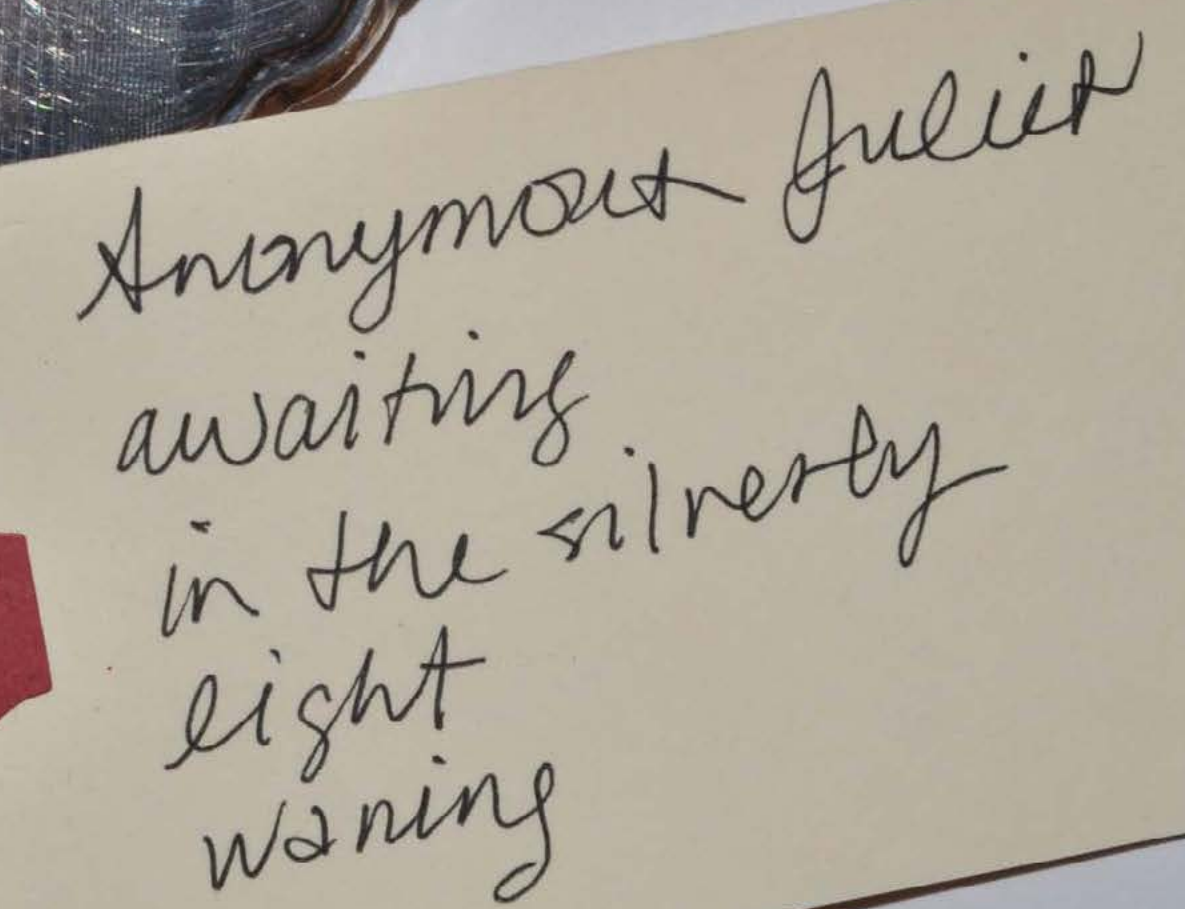 Anonymous Juliet
awaiting
in the silverly
light
waning